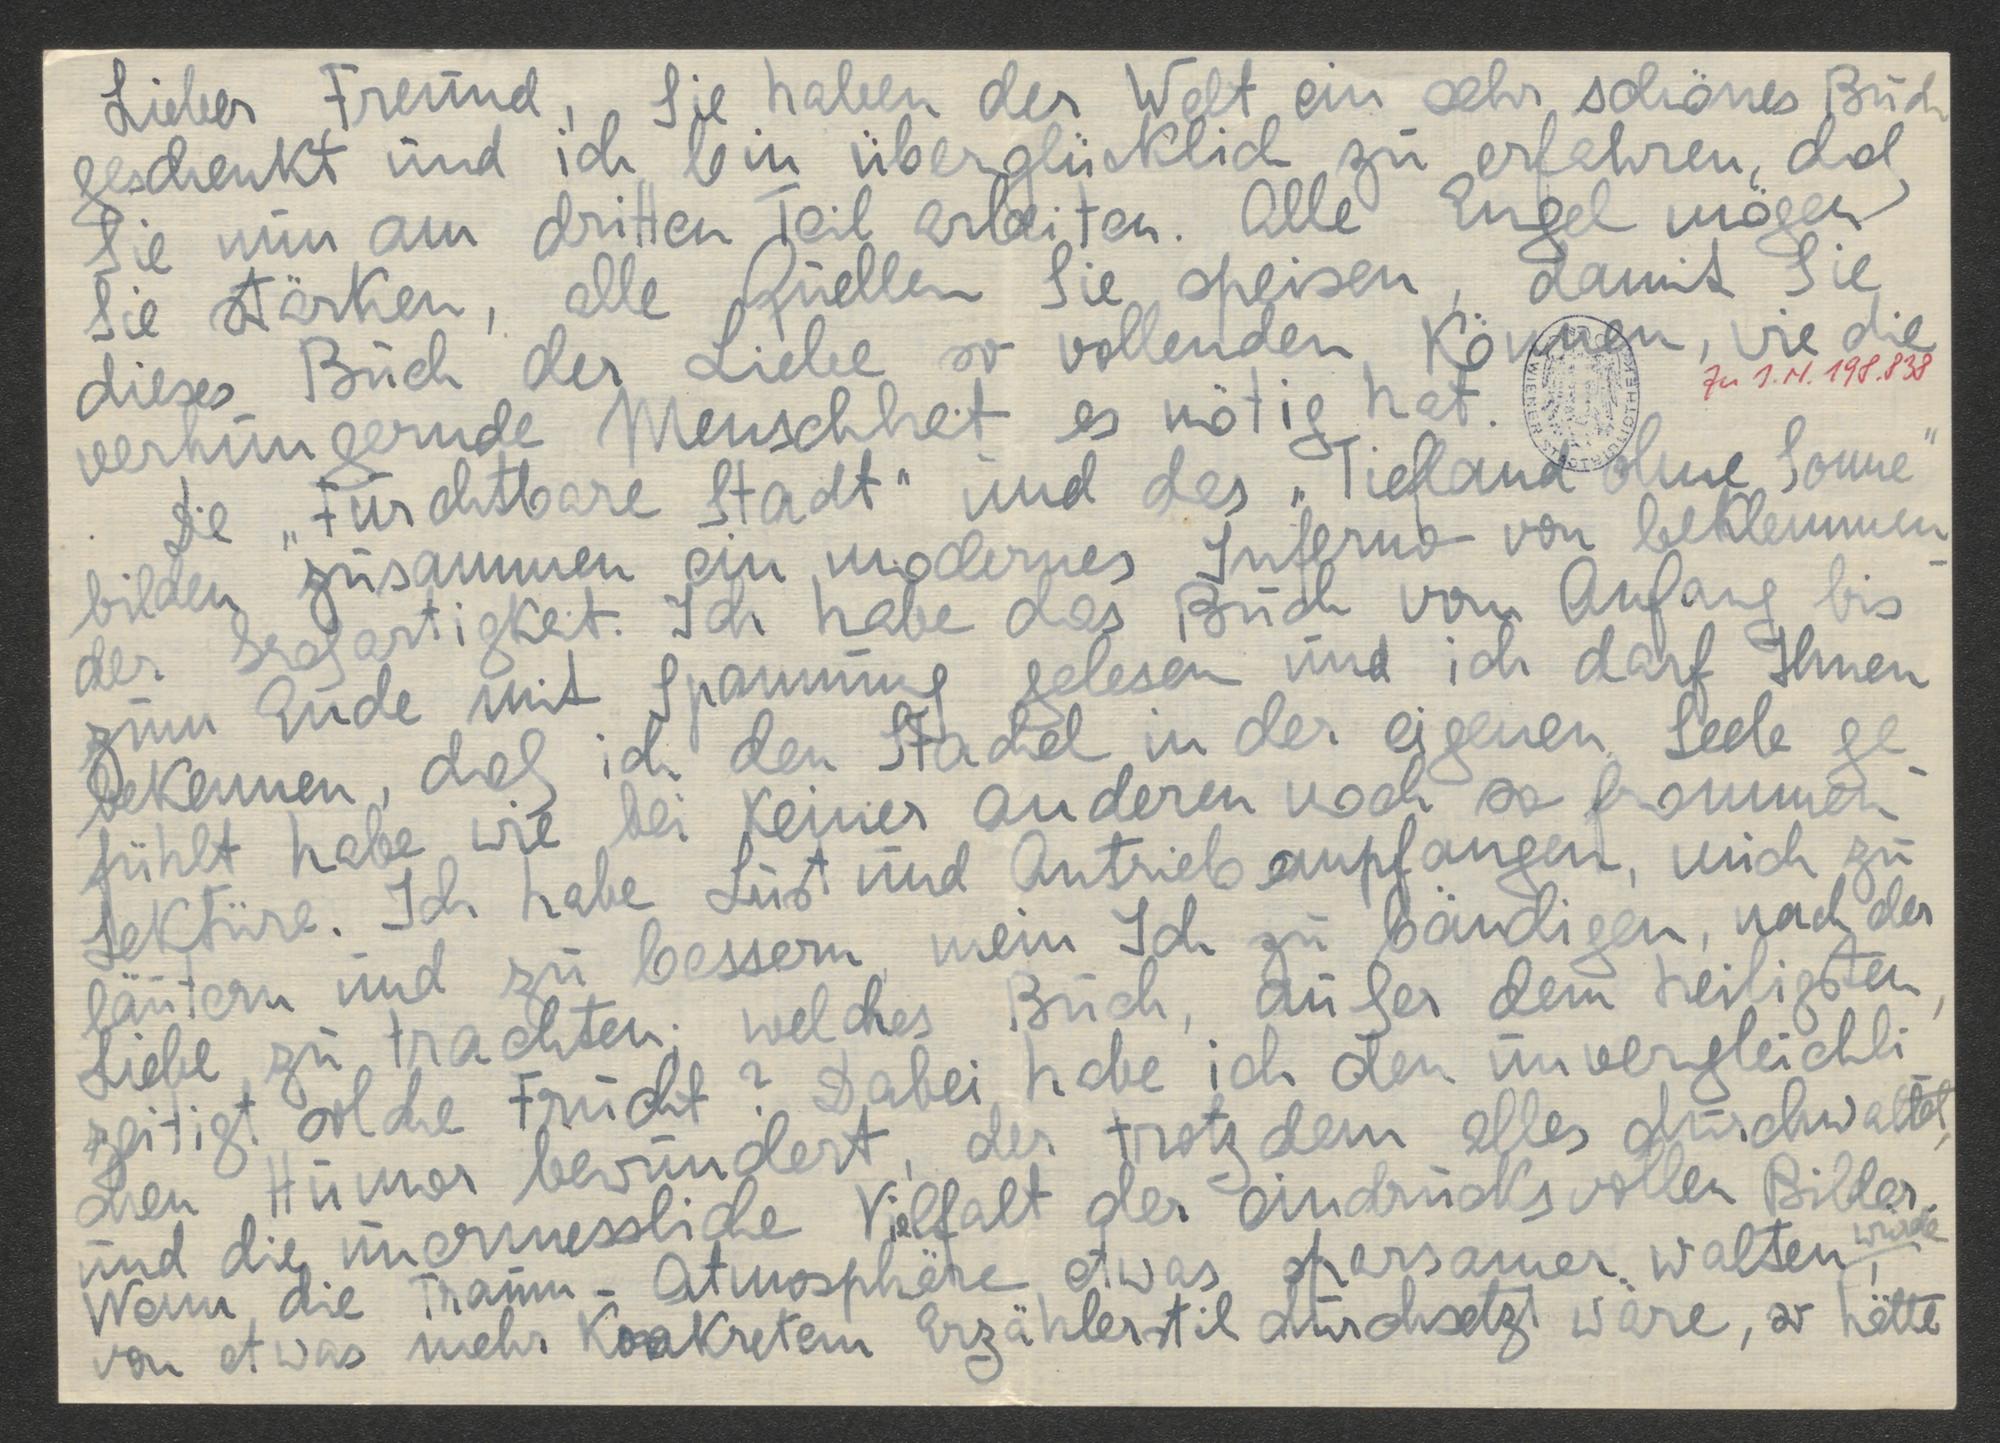 Lieber Freund, Sie haben der Welt ein sehr schönes Buch
geschenkt und ich bin überglücklich zu erfahren, daß
Sie nun am dritten Teil arbeiten. Alle Engel mögen
Sie stärken, alle Quellen Sie speisen, damit Sie
dieses Buch der Liebe so vollenden können, wie die
Zu I.N. 198.838
verhungernde Menschheit es nötig hat.
Die „Furchtbare Stadt" und das „Tiefland ohne Sonne"
bilden zusammen ein modernes Inferno von beklemmen-
der Großartigkeit. Ich habe das Buch vom Anfang bis
zum Ende mit Spannung gelesen und ich darf Ihnen
bekennen, daß ich den Stachel in der eigenen Seele ge-
fühlt habe wie bei keiner anderen noch so frommen
Lektüre. Ich habe Lust und Antrieb empfangen, mich zu
läutern und zu bessern, mein Ich zu bändigen, nach der
Liebe zu trachten; welches Buch, außer dem heiligsten,
zeitigt solche Frucht? Dabei habe ich den unvergleichli-
chen Humor bewundert, der trotzdem alles durchwaltet,
und die unermessliche Vielfalt der eindrucksvollen Bilder.
Wenn die Traum-Atmosphäre etwas sparsamer walten würde,
von etwas mehr konkretem Erzählerstil durchsetzt wäre, so hätte